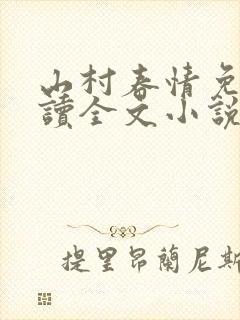 山村春情免
讀全文小說
提里昂蘭尼斯